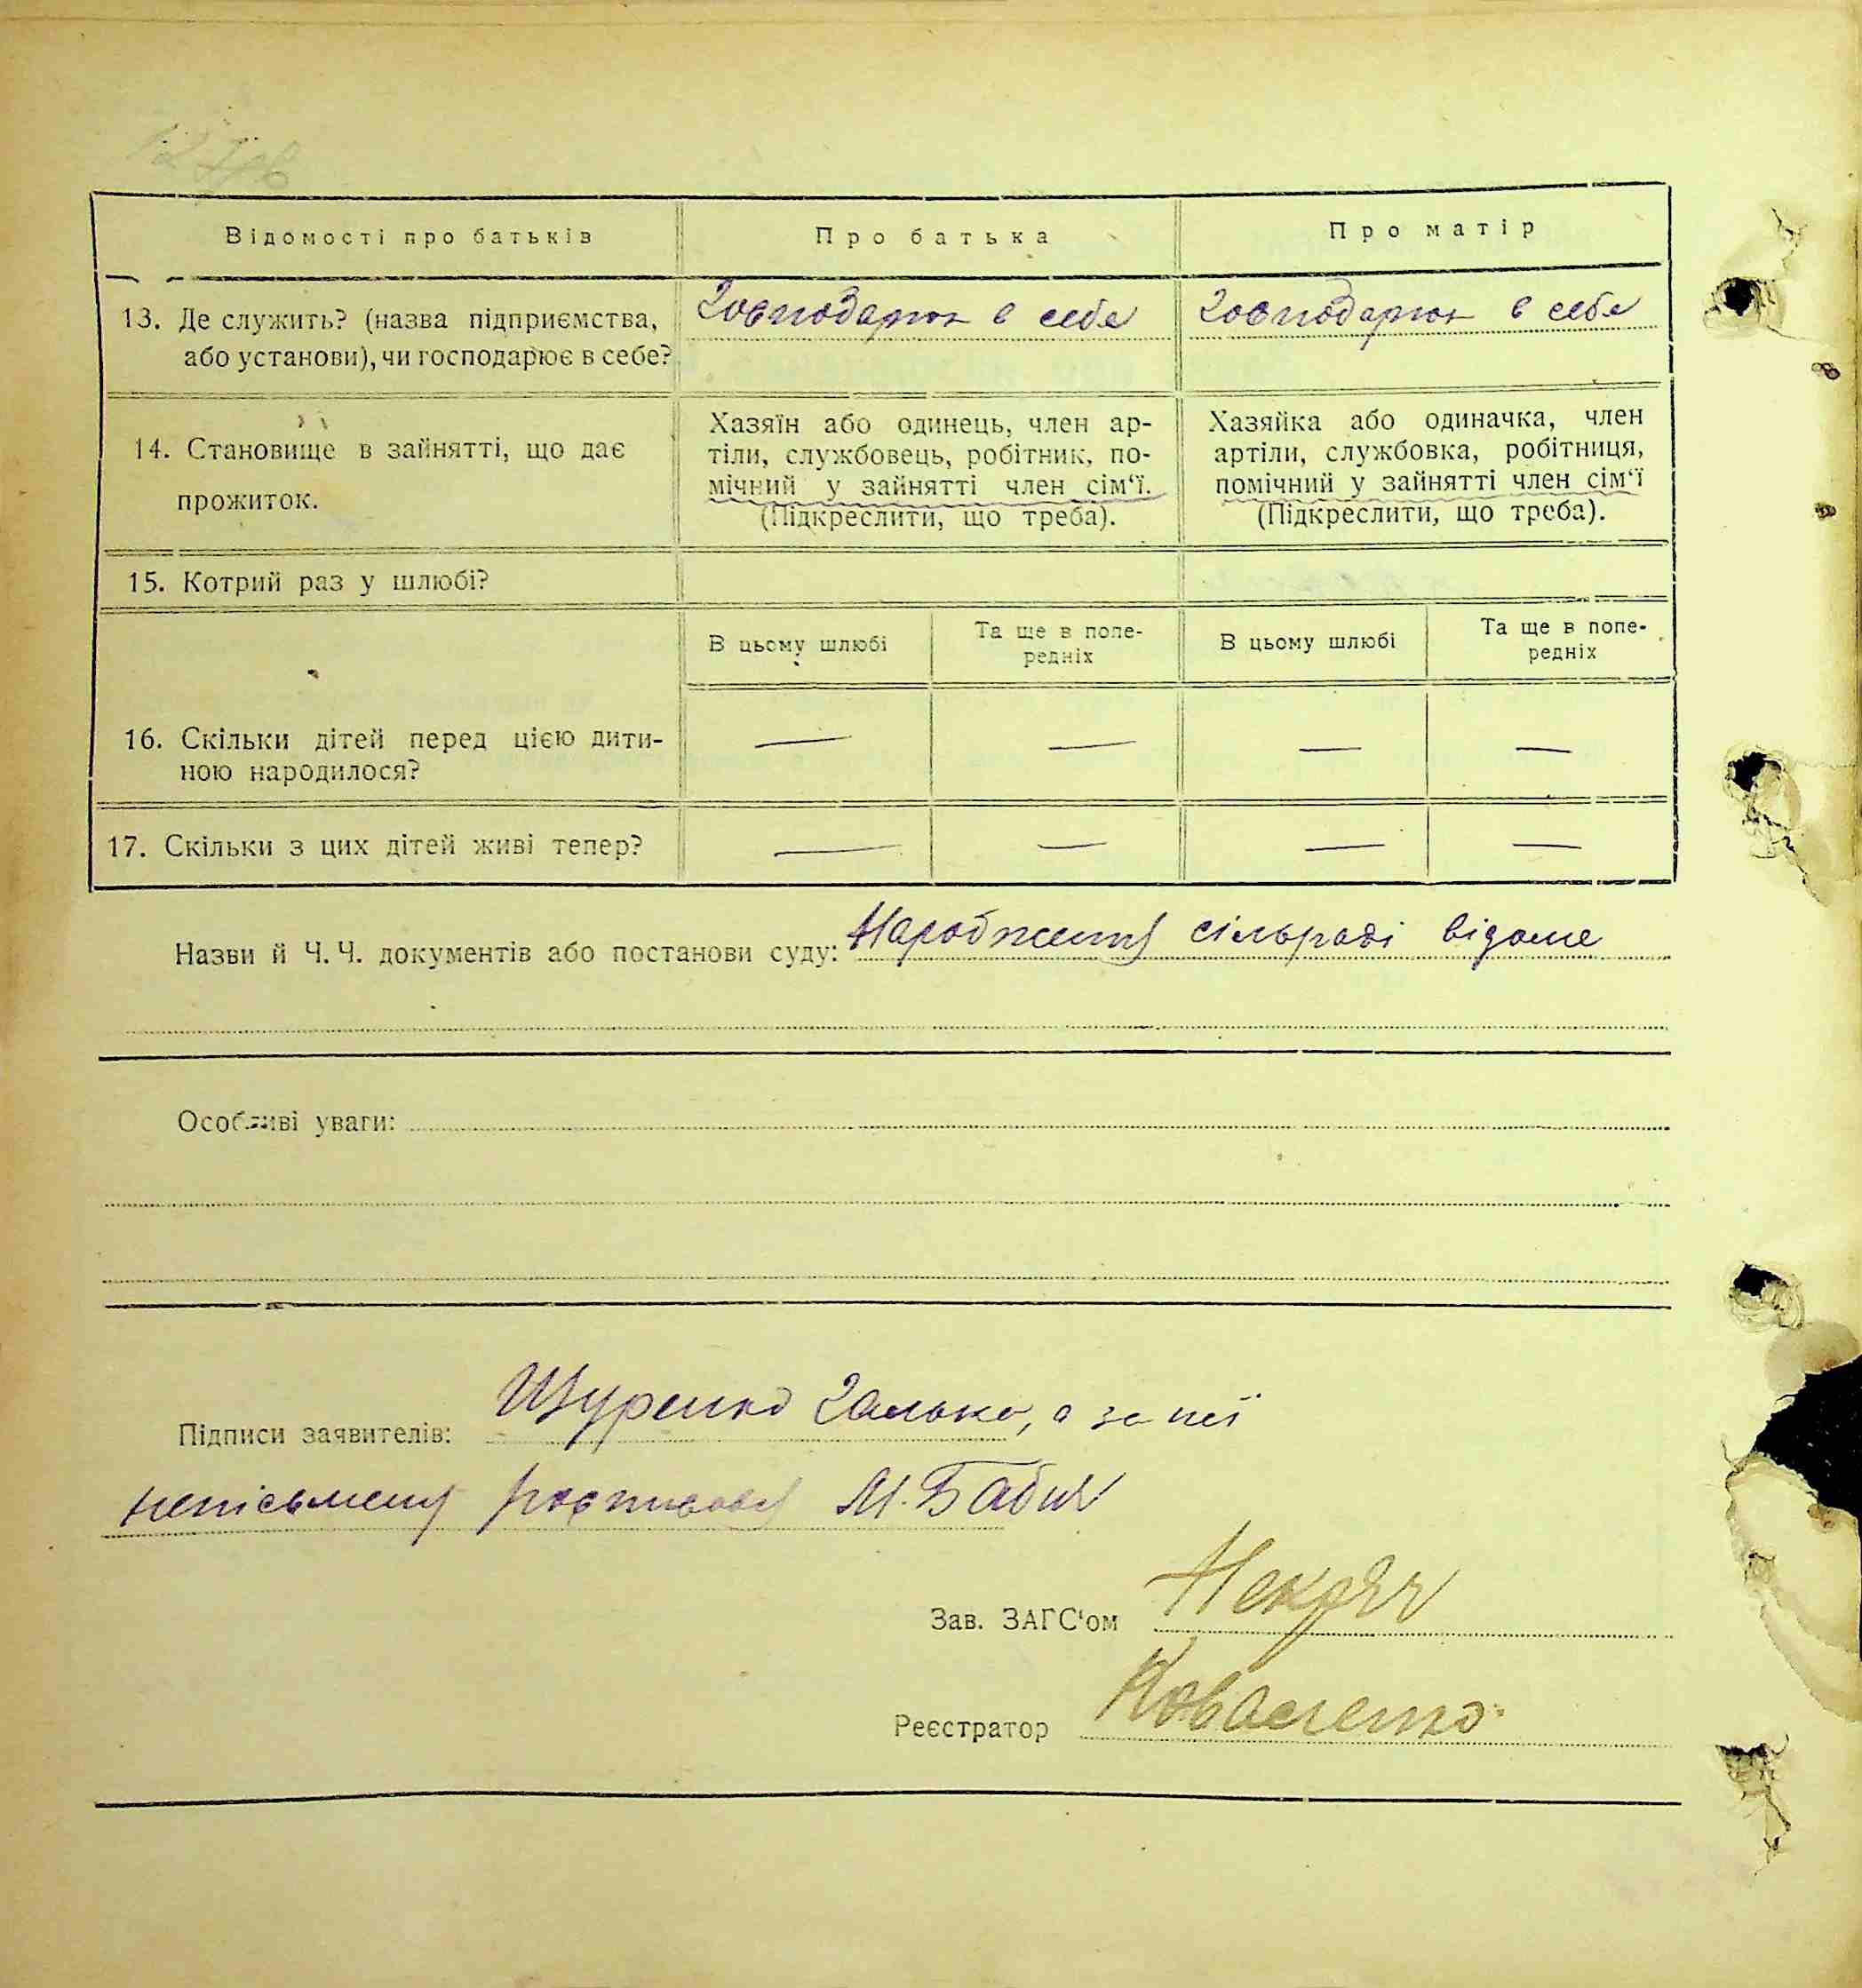 Відомості про батьків
Про батька
Про матір
13. Де служить? (назва підприємства,
або установи), чи господарює в себе?
Господарює в себе
Господарює в себе
14. Становище в зайнятті, що дає
прожиток.
Хазяїн або одинець, член ар-
тіли, службовець, робітник, по-
мічний у зайнятті член сім'ї.
(Підкреслити, що треба).
Хазяйка або одиначка, член
артіли, службовка, робітниця,
помічний у зайнятті член сім'ї
(Підкреслити, що треба).
15. Котрий раз у шлюбі?
В цьому шлюбі
Та ще в попе-
редніх
В цьому шлюбі
Та ще в попе-
редніх
16. Скільки дітей перед цією дити-
ною народилося?
— — — —
17. Скільки з цих дітей живі тепер?
— — — —
Назви й Ч. Ч. документів або постанови суду: Народження сільраді відоме
Особливі уваги:
Підписи заявителів: Щуренко Галька, а за неї
неписьмену росписався М. Бабич
Зав. ЗАГС'ом
Реєстратор Коваленко